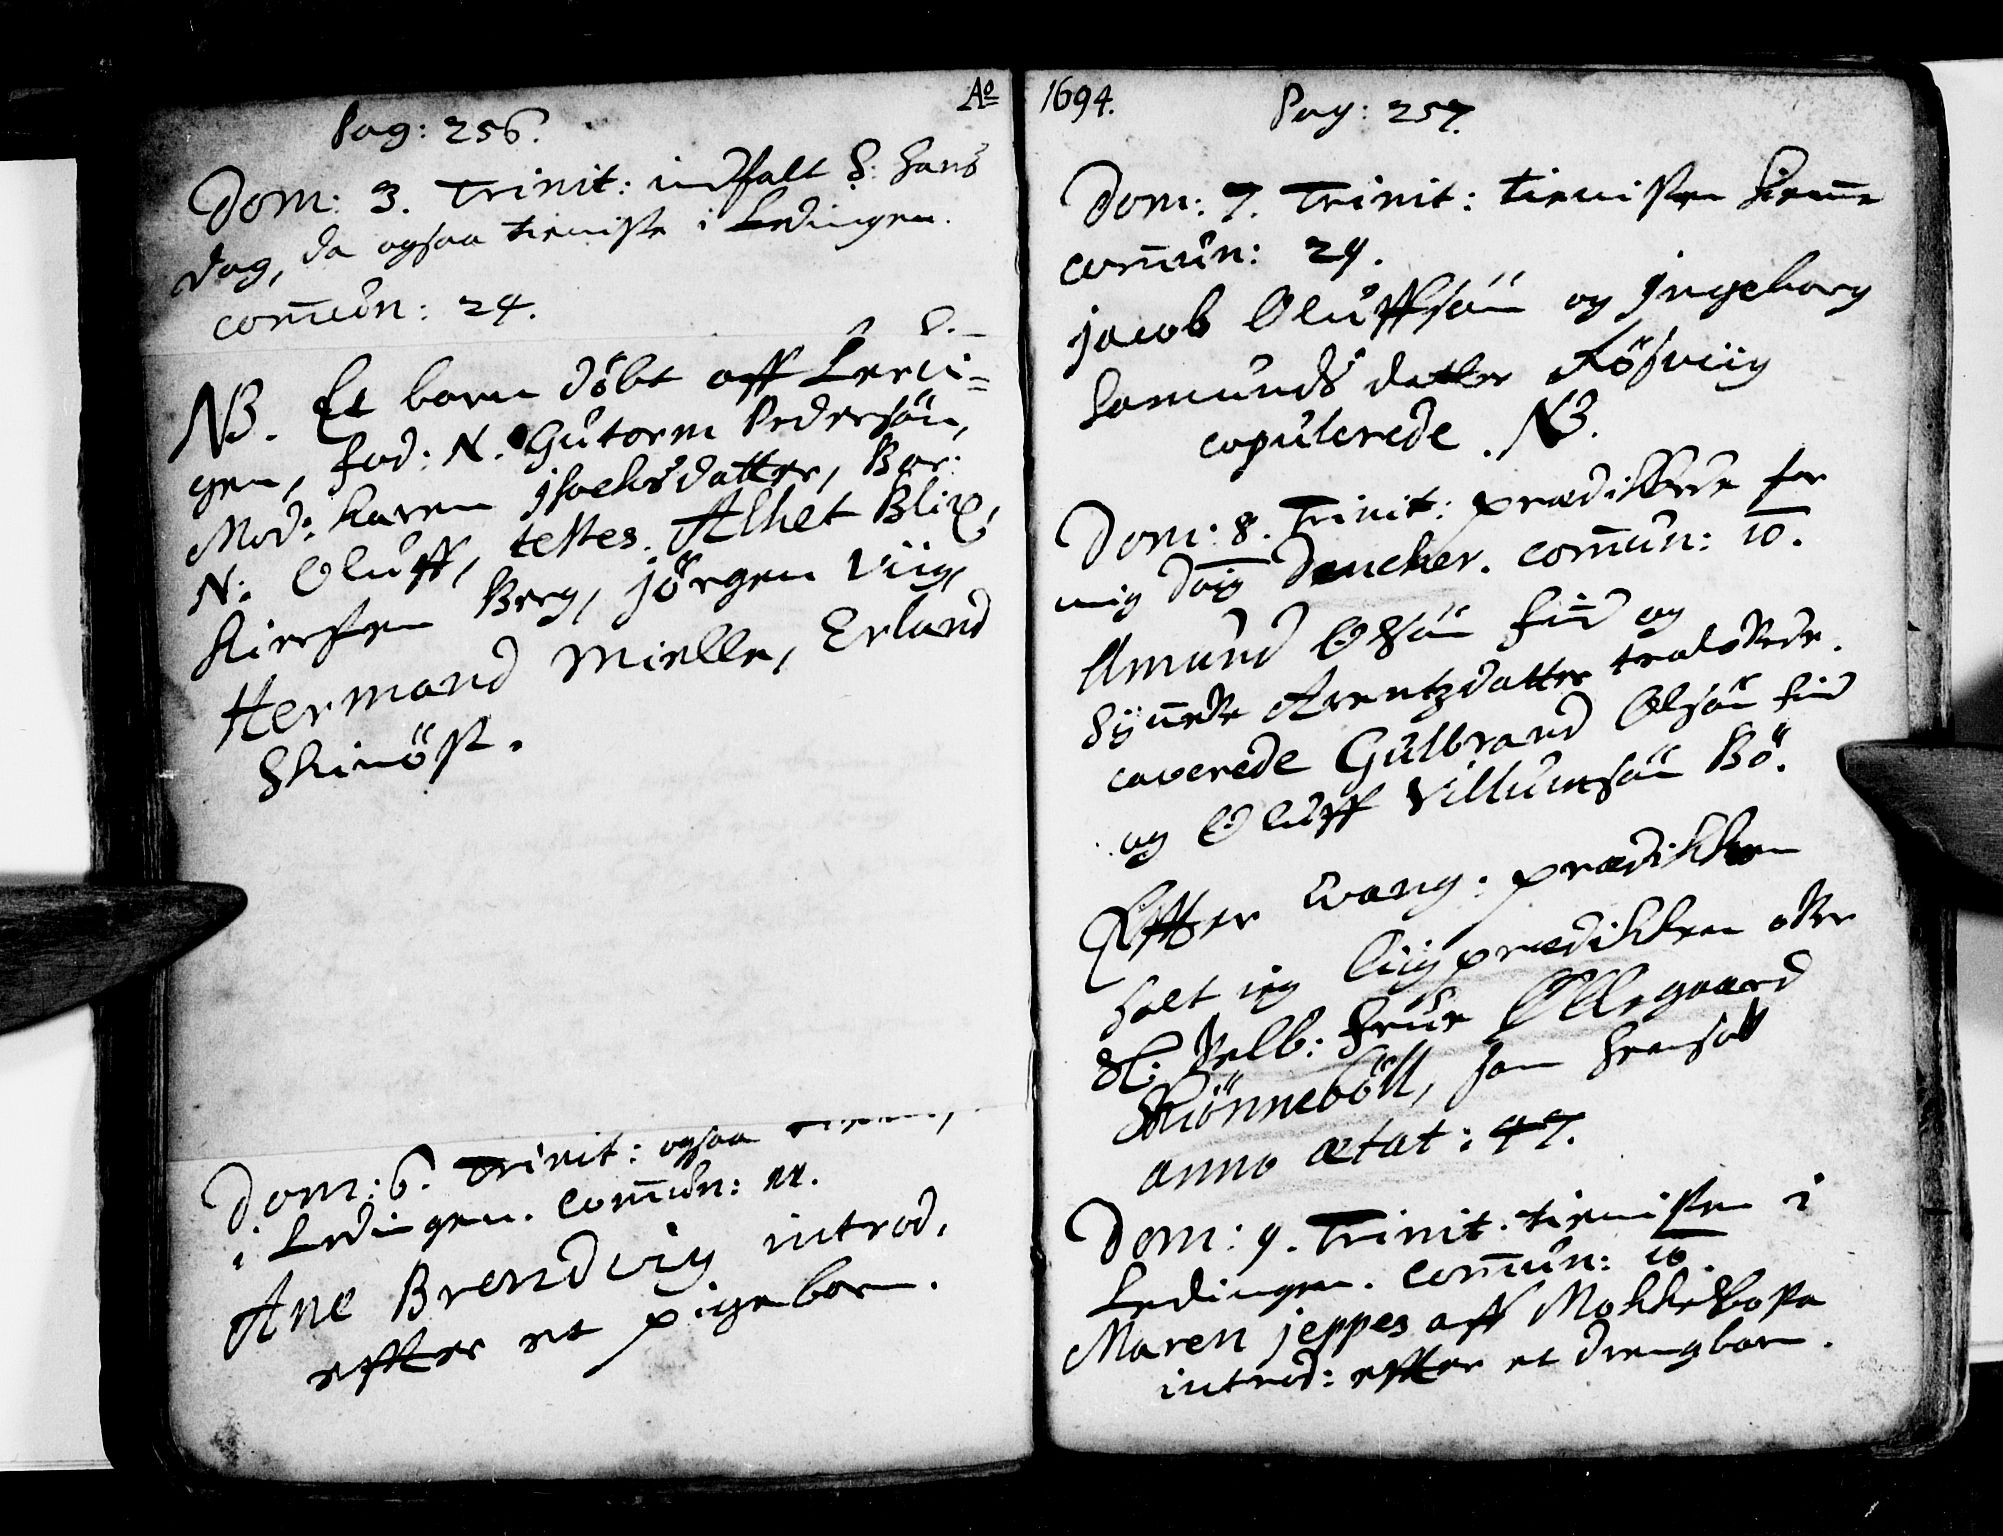 Pag: 256.
Aº
Dom: 3. Trinit: indfalt S: Hans
dag, da ogsaa tieniste i Lødingen.
com̄ūn: 24.
NB. Et barn döbt aff Lerū=
gen, fad: N. Gutorm Pedersön,
Mod: Karen jsachsdatter, Bar:
N: Oluff, testes. Alhet Blix,
Kiersten Berg, jörgen Viig,
Hermand Mielle, Erland
Skinöst.
Dom: 6. Trinit: ogsaa
i Lødingen. Com̄ūn: 11.
Ane Brendvig introd.
effter et pigebarn.
1694.
Pag: 257.
Dom: 7. Trinit: tienisten hiem̄e
com̄ūn: 29.
jacob Oluffsön og jngeborg
Samunds datter Rösviig
copulerede. NB.
Dom: 8. Trinit: prædikkede for
mig Dancher. Com̄ūn: 10.
Amund Olsön Find og
Syn̄eke Arentzdatter trolofvede.
caverede Gulbrand Olsön Find
og Oluff Villumsön Bö.
Effter Evang: prædikken
holt ieg Liigprædikken ofver
Sl: Velb: Frue Ollegaard
Skönneböll, som hensoff
anno ætat: 47.
Dom: 9. Trinit. tienisten i
Lødingen. Com̄ūn: 10.
Maren jeppes aff
introd: effter et drengbarn.